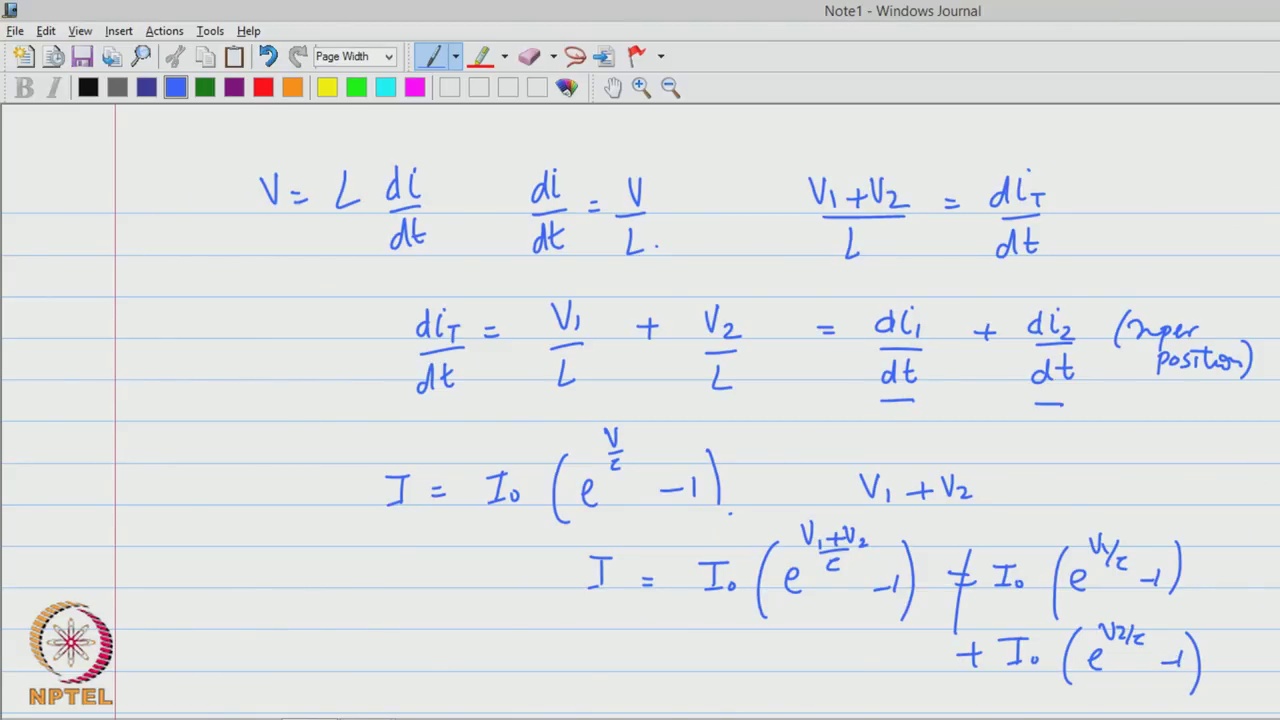 Note1 - Windows Journal
File Edit View Insert Actions Tools Help
Page Width
B I
V = L di/dt di/dt = V/L. V1 + V2/L = diT/dt
diT/dt = V1/L + V2/L = di1/dt + di2/dt (super
position)
I = I0 (e^V/c - 1). V1 + V2
I = I0 (e^V1+V2/c - 1) ≠ I0 (e^V1/c - 1)
+ I0 (e^V2/c - 1)
NPTEL